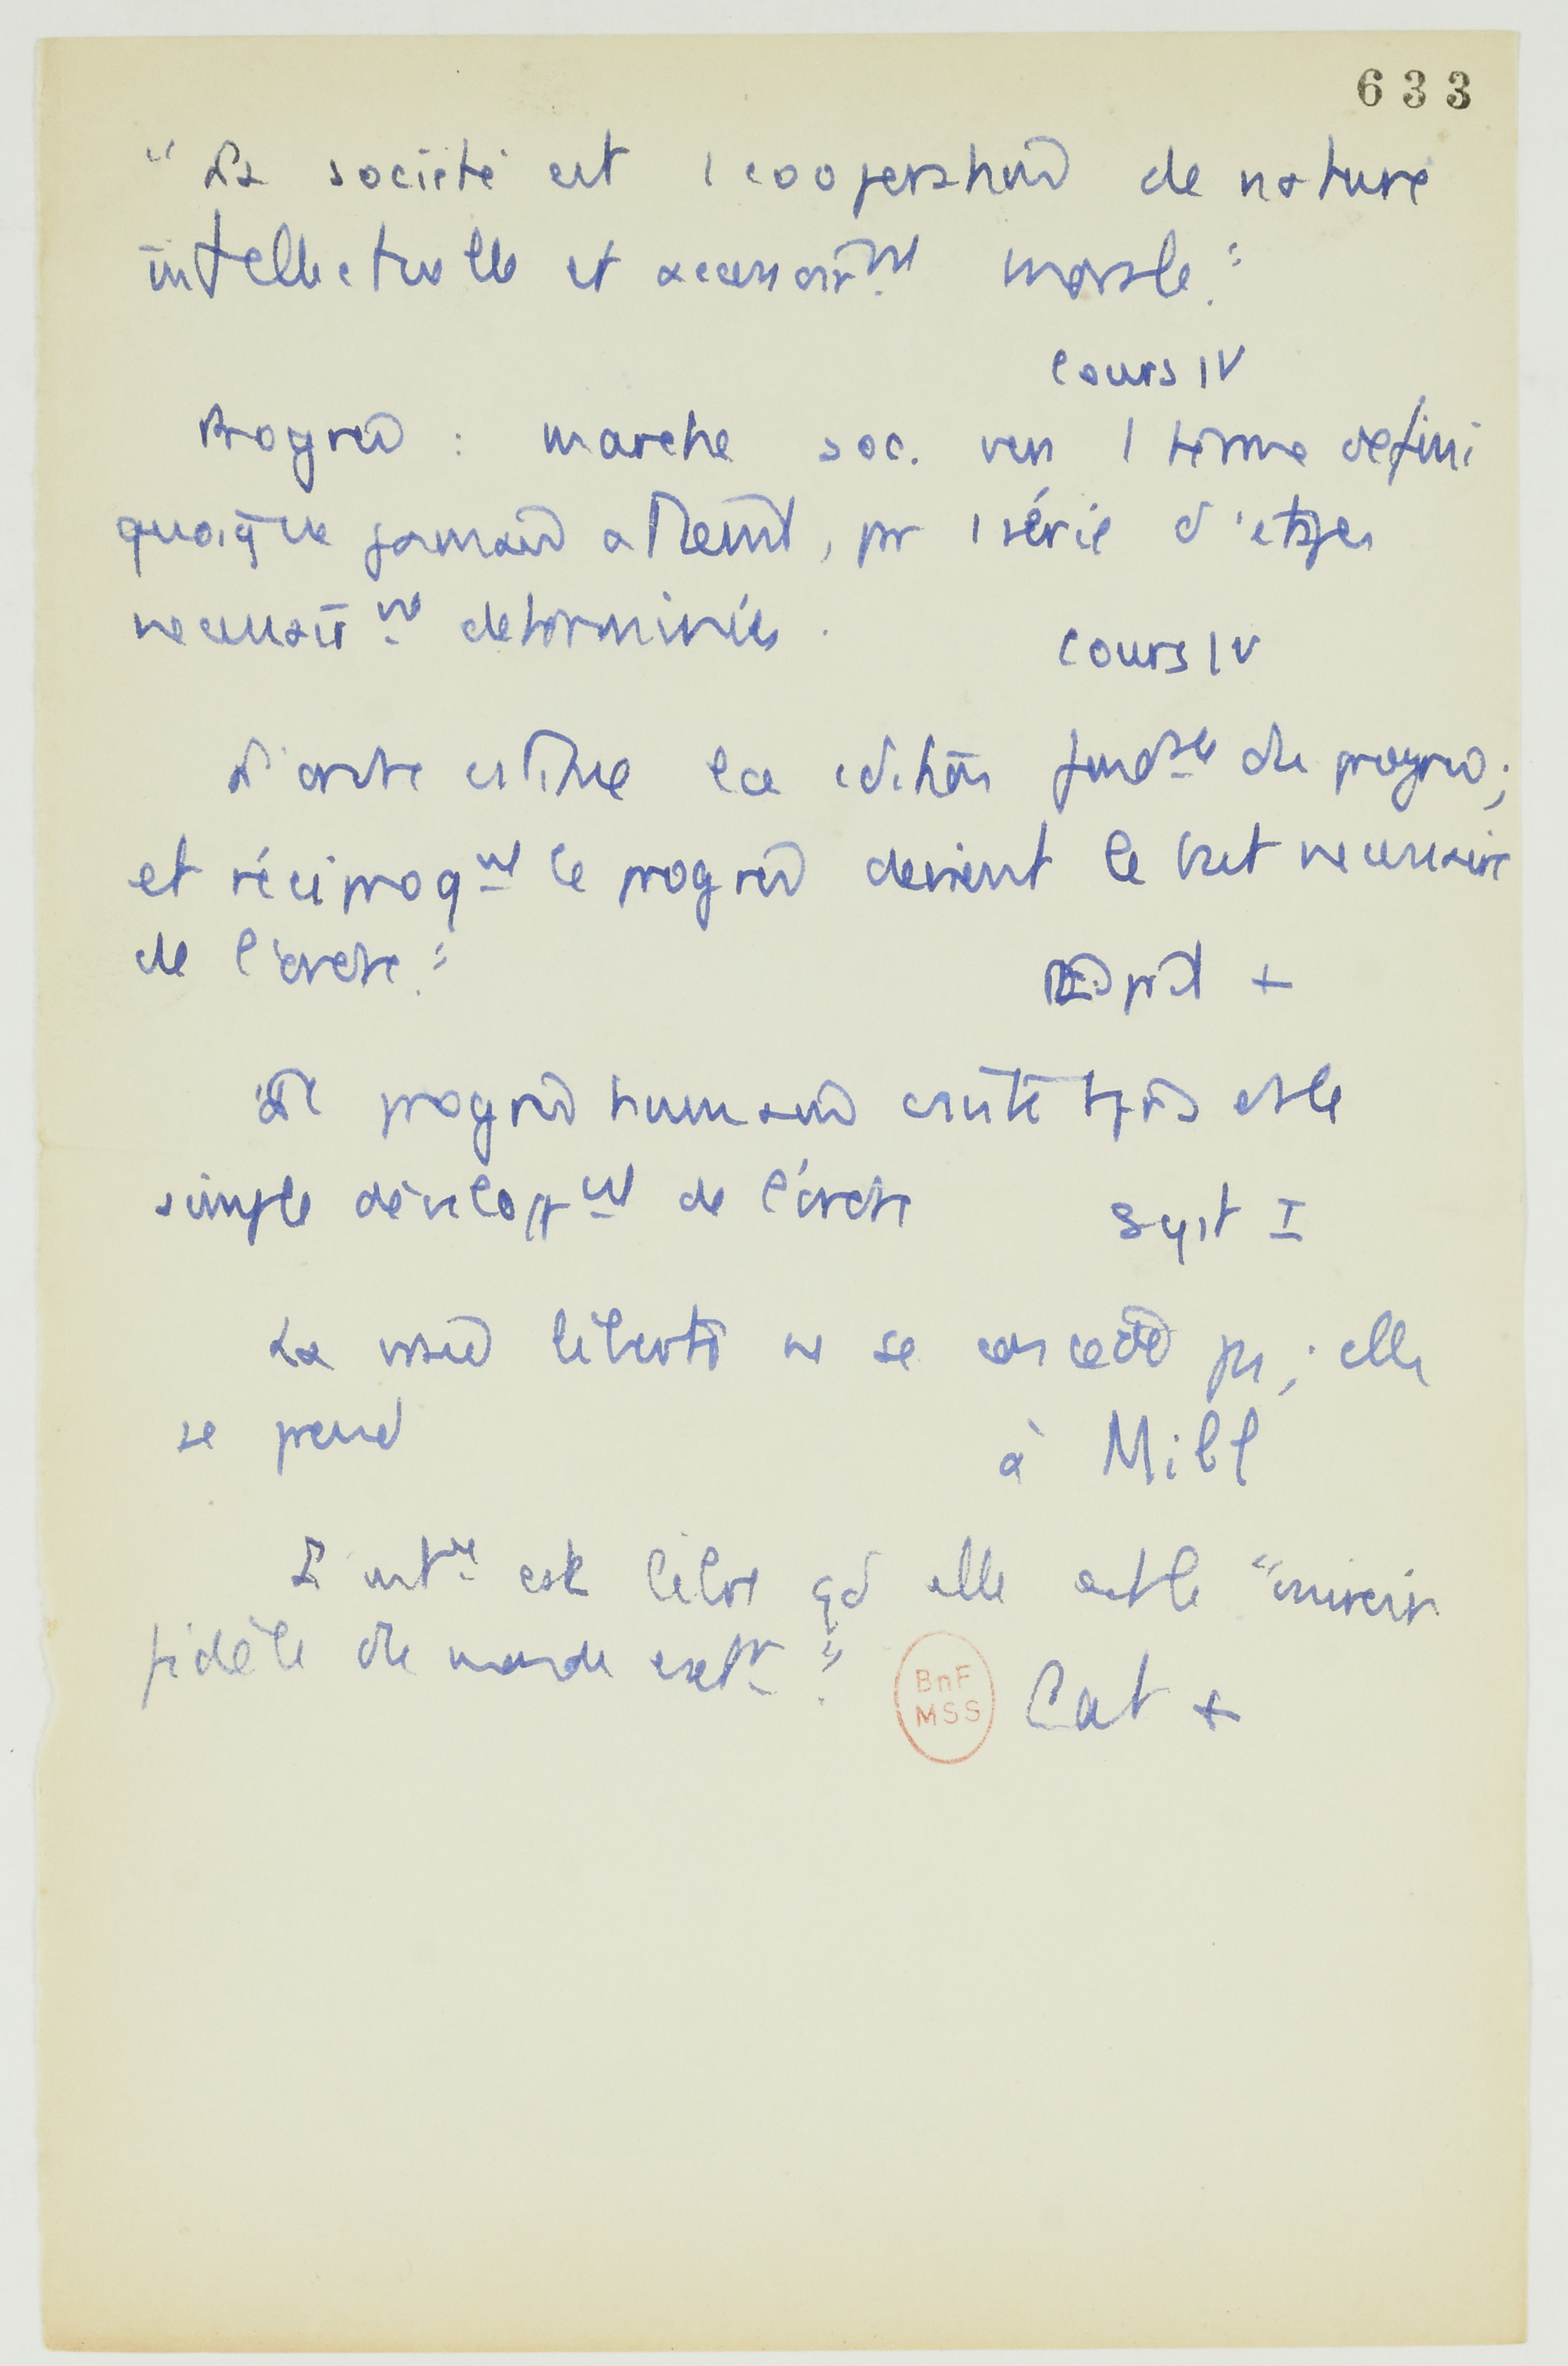 633
"La société est 1 coopération de nature
intellectuelle et accessoirmt morale."
Cours IV
Progrès : marche soc. vers 1 terme défini
quoique jamais atteint, pr 1 série d'étapes
nécessairt déterminées.
Cours IV
L'ordre est la condition fondale du progrès;
et réciproqmt le progrès devient le but nécessaire
de l'ordre."
Esprit +
"Le progrès humain est le
simple développmt de l'ordre
Syst I
La vraie liberté ne se concède pas; elle
se prend
à Mill
L' est libre qd elle est le "miroir
fidèle du monde extr."
BnF
MSS
Cat +